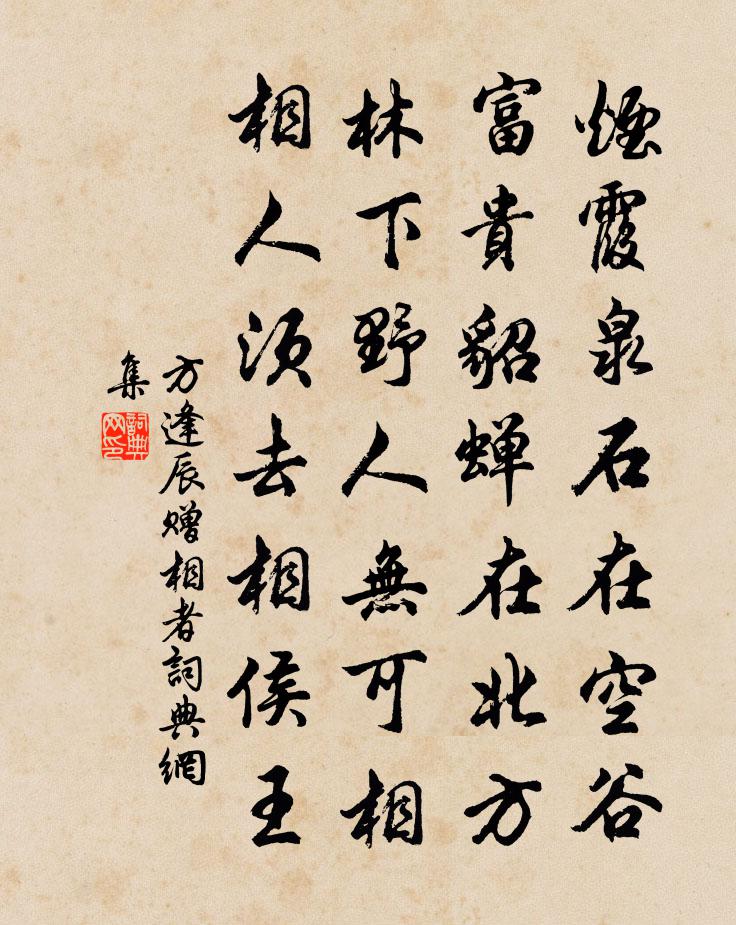 煙霞泉石在空谷
富貴貂蟬在北方
林下野人無可相
相人須去相侯王
方逢辰赠相者詞典網
集
詞典
网印